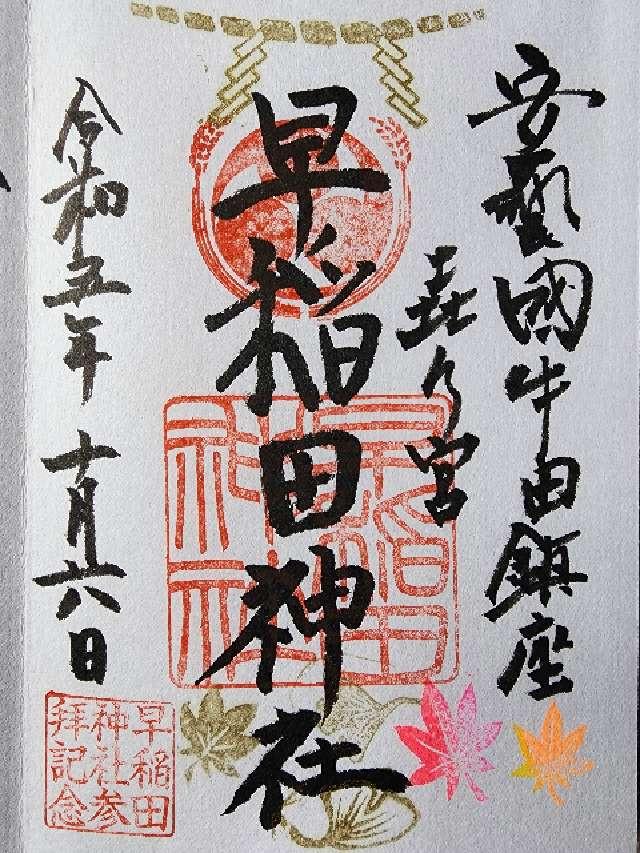 安藝國牛田鎮座
㐂々宮
早稲田神社
令和五年十月六日
早稲田
神社参
拝記念
早稲田
神社